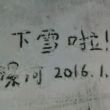 下雪啦!
漠河 2016.1.